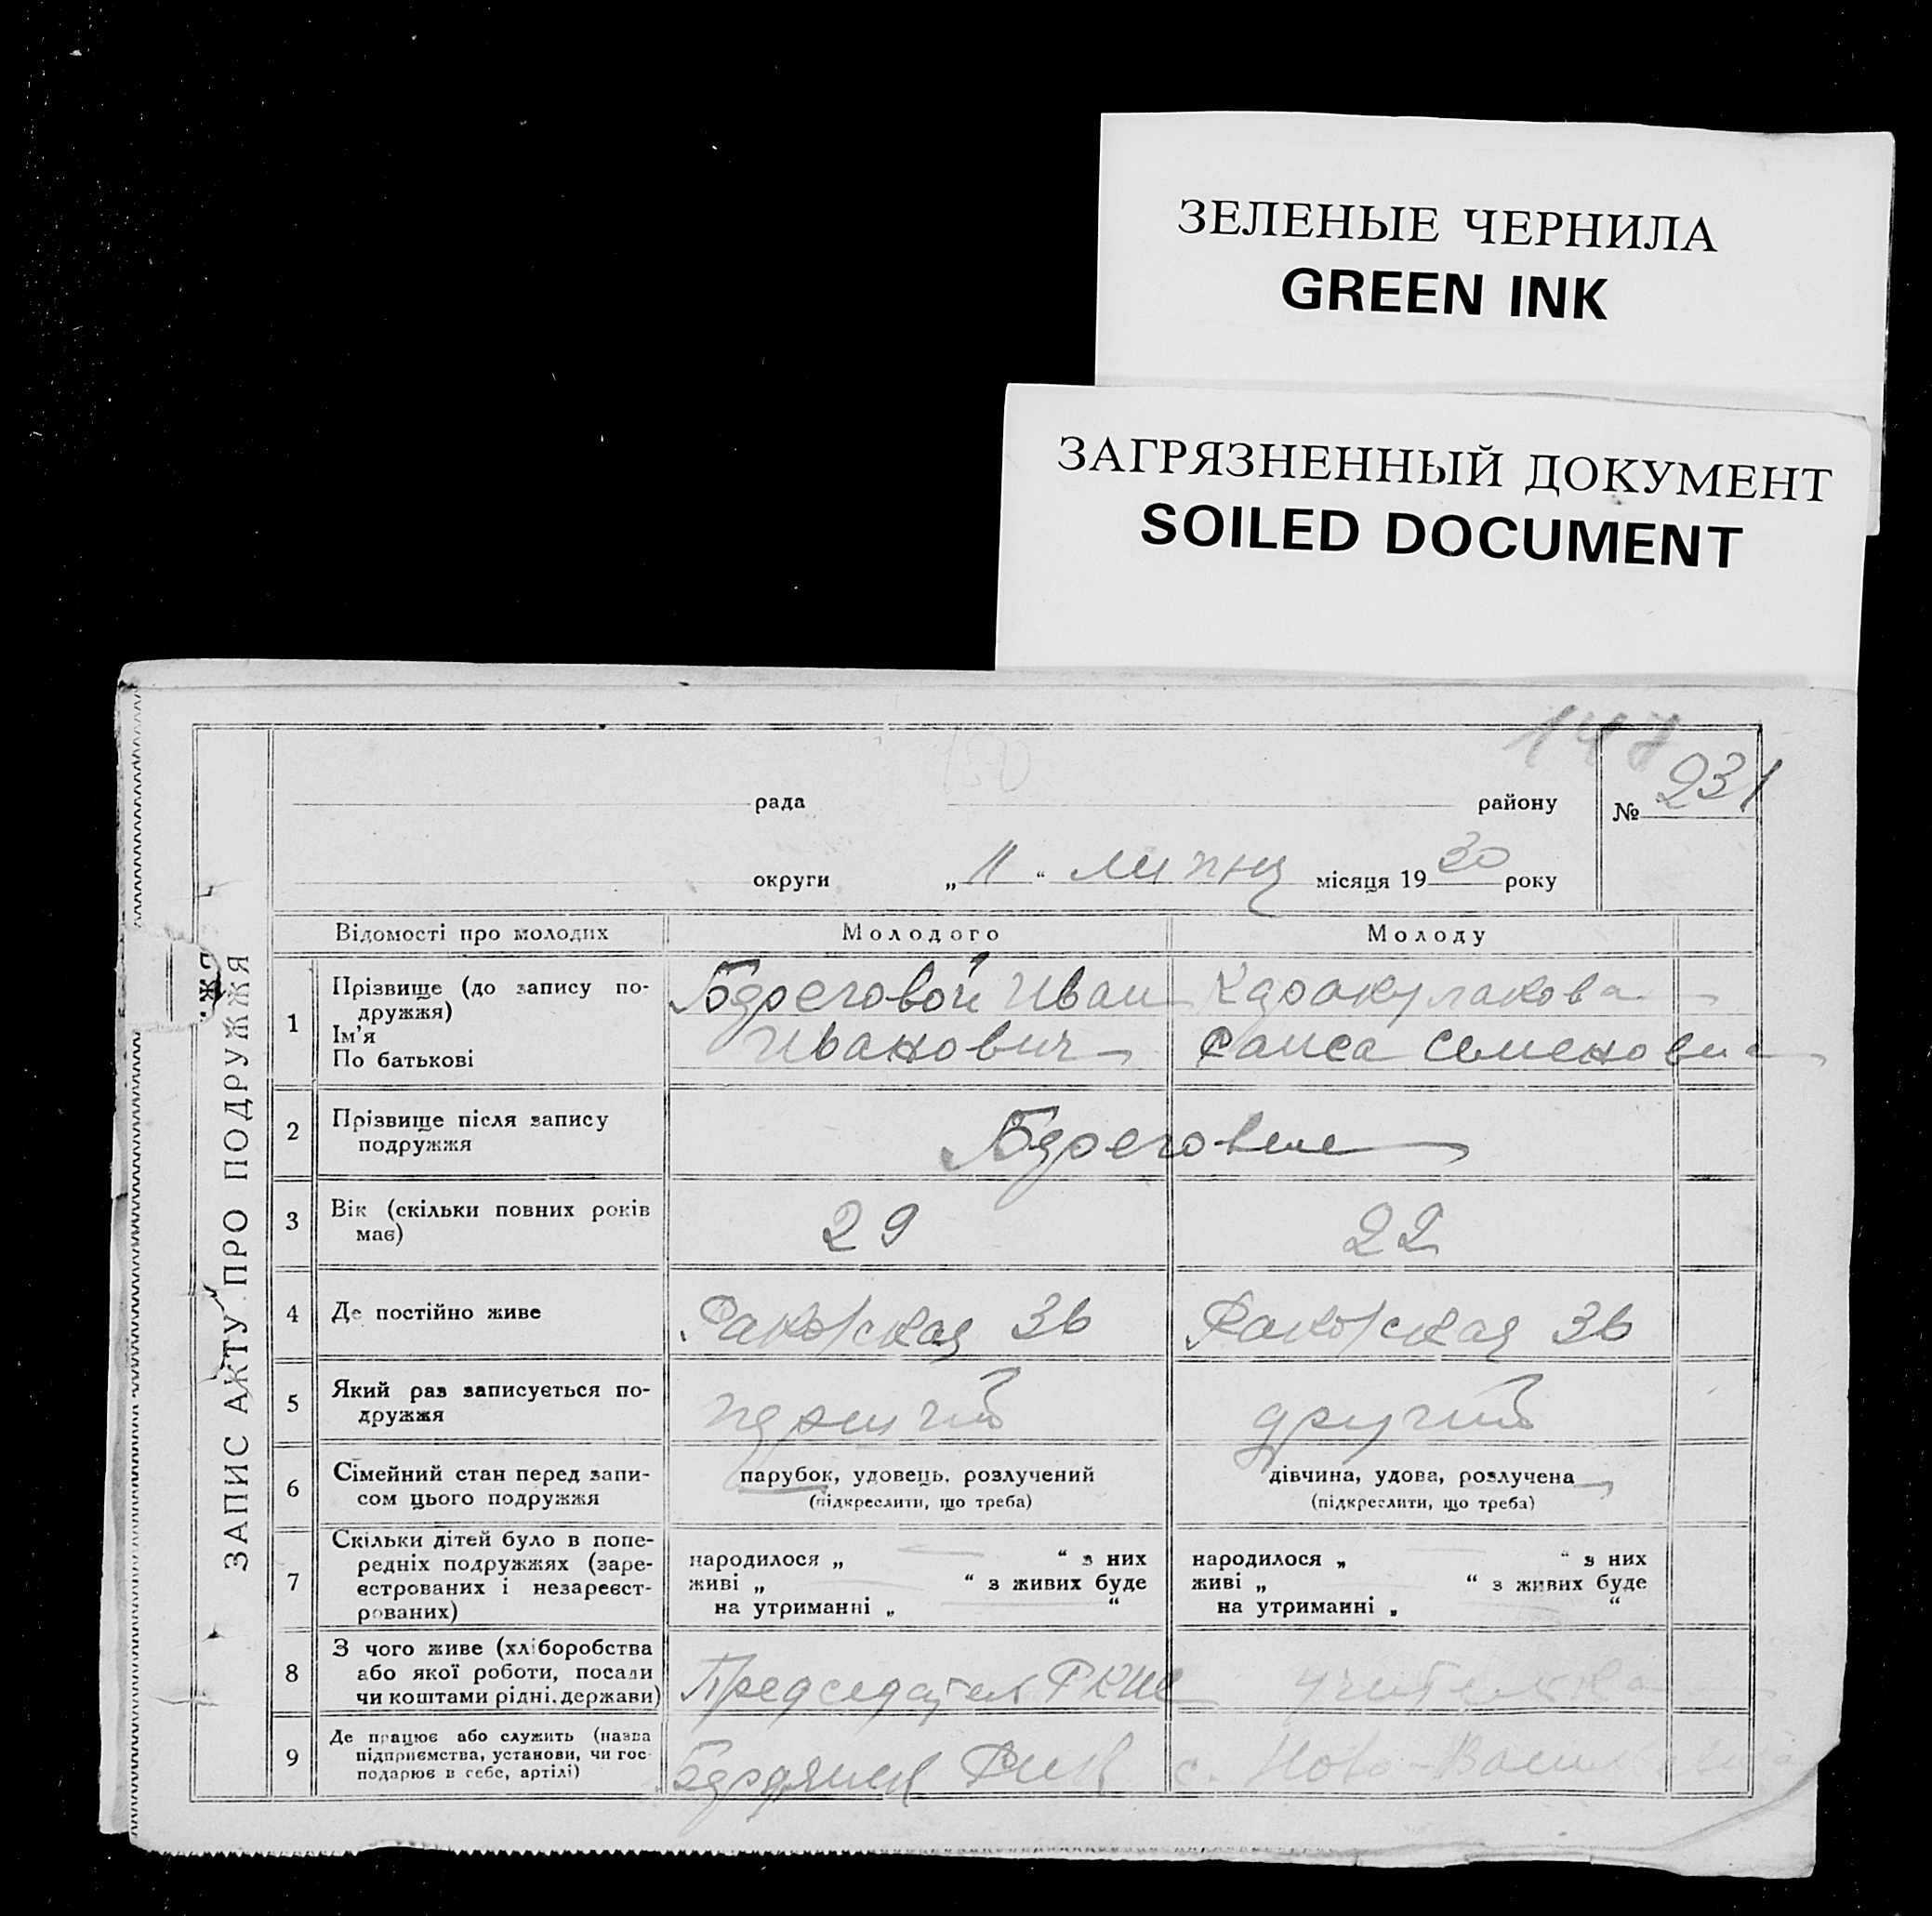 ЗЕЛЕНЫЕ ЧЕРНИЛА
GREEN INK
ЗАГРЯЗНЕННЫЙ ДОКУМЕНТ
SOILED DOCUMENT
147
рада району № 231
округи „ 11 “ липня місяця 1930 року
ЗАПИС АКТУ ПРО ПОДРУЖЖЯ
Відомості про молодих Молодого Молоду
1 Прізвище (до запису подружжя)
Ім'я
По батькові
Береговой Иван
Иванович
Каракулакова
Раиса Семеновна
2 Прізвище після запису
подружжя
Береговые
3 Вік (скільки повних років
має)
29 22
4 Де постійно живе
36 36
5 Який раз записується по-
дружжя
другий
6 Сімейний стан перед запи-
сом цього подружжя
парубок, удовець, розлучений
(підкреслити, що треба)
дівчина, удова, розлучена
(підкреслити, що треба)
7 Скільки дітей було в попе-
редніх подружжях (заре-
єстрованих і незареєст-
рованих)
народилося „ “ з них
живі „ “ з живих буде
на утриманні „ “
народилося „ “ з них
живі „ “ з живих буде
на утриманні „ “
8 З чого живе (хліборобства
або якої роботи, посади
чи коштами рідні, держави)
Председател
учителька
9 Де працює або служить (назва
підприємства, установи, чи гос-
подарює в себе, артілі)
Бердянск Рик
с. Ново-